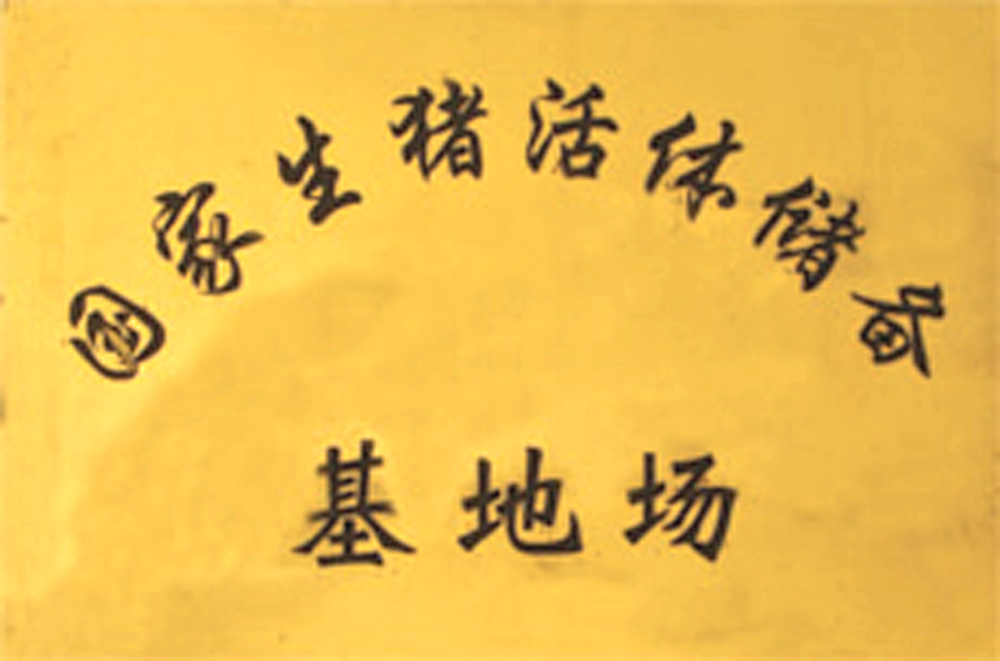 国家生猪活体储备
基地场